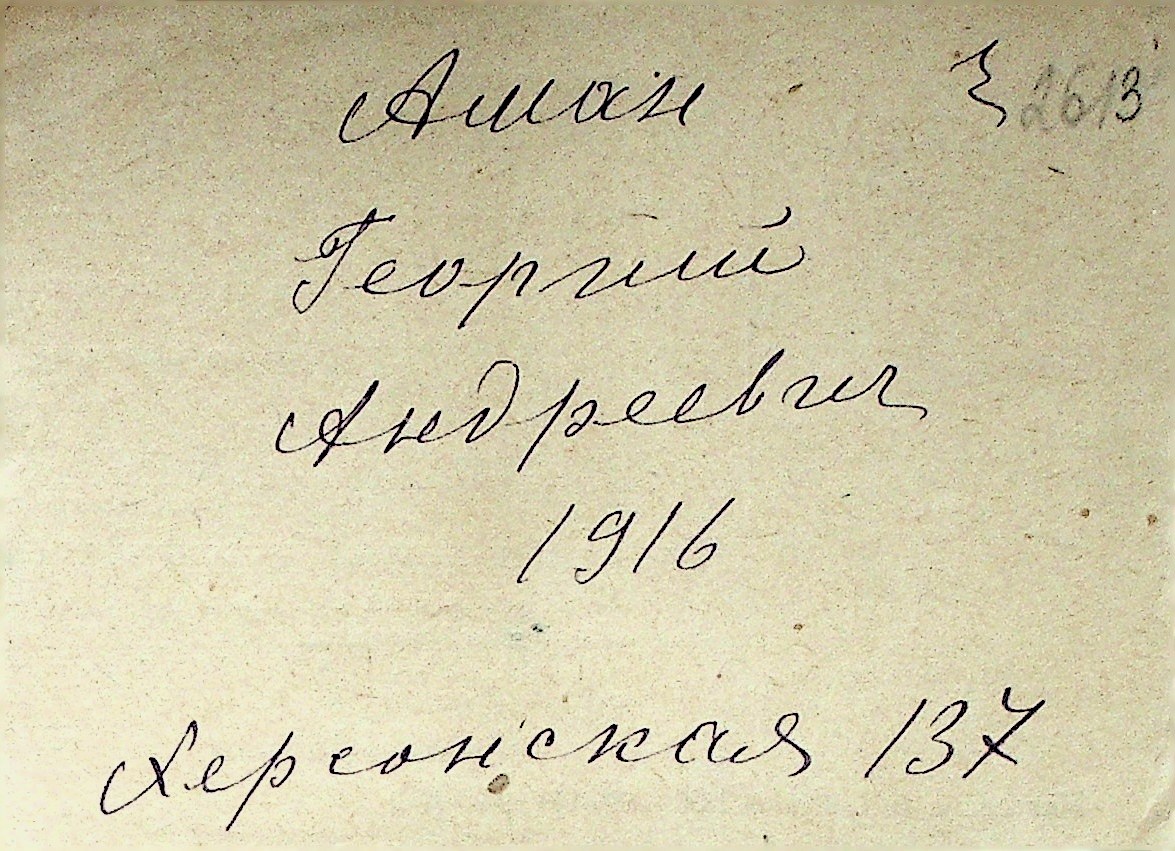 Аман З 2613
Георгий
Андреевич
1916
Херсонская 137